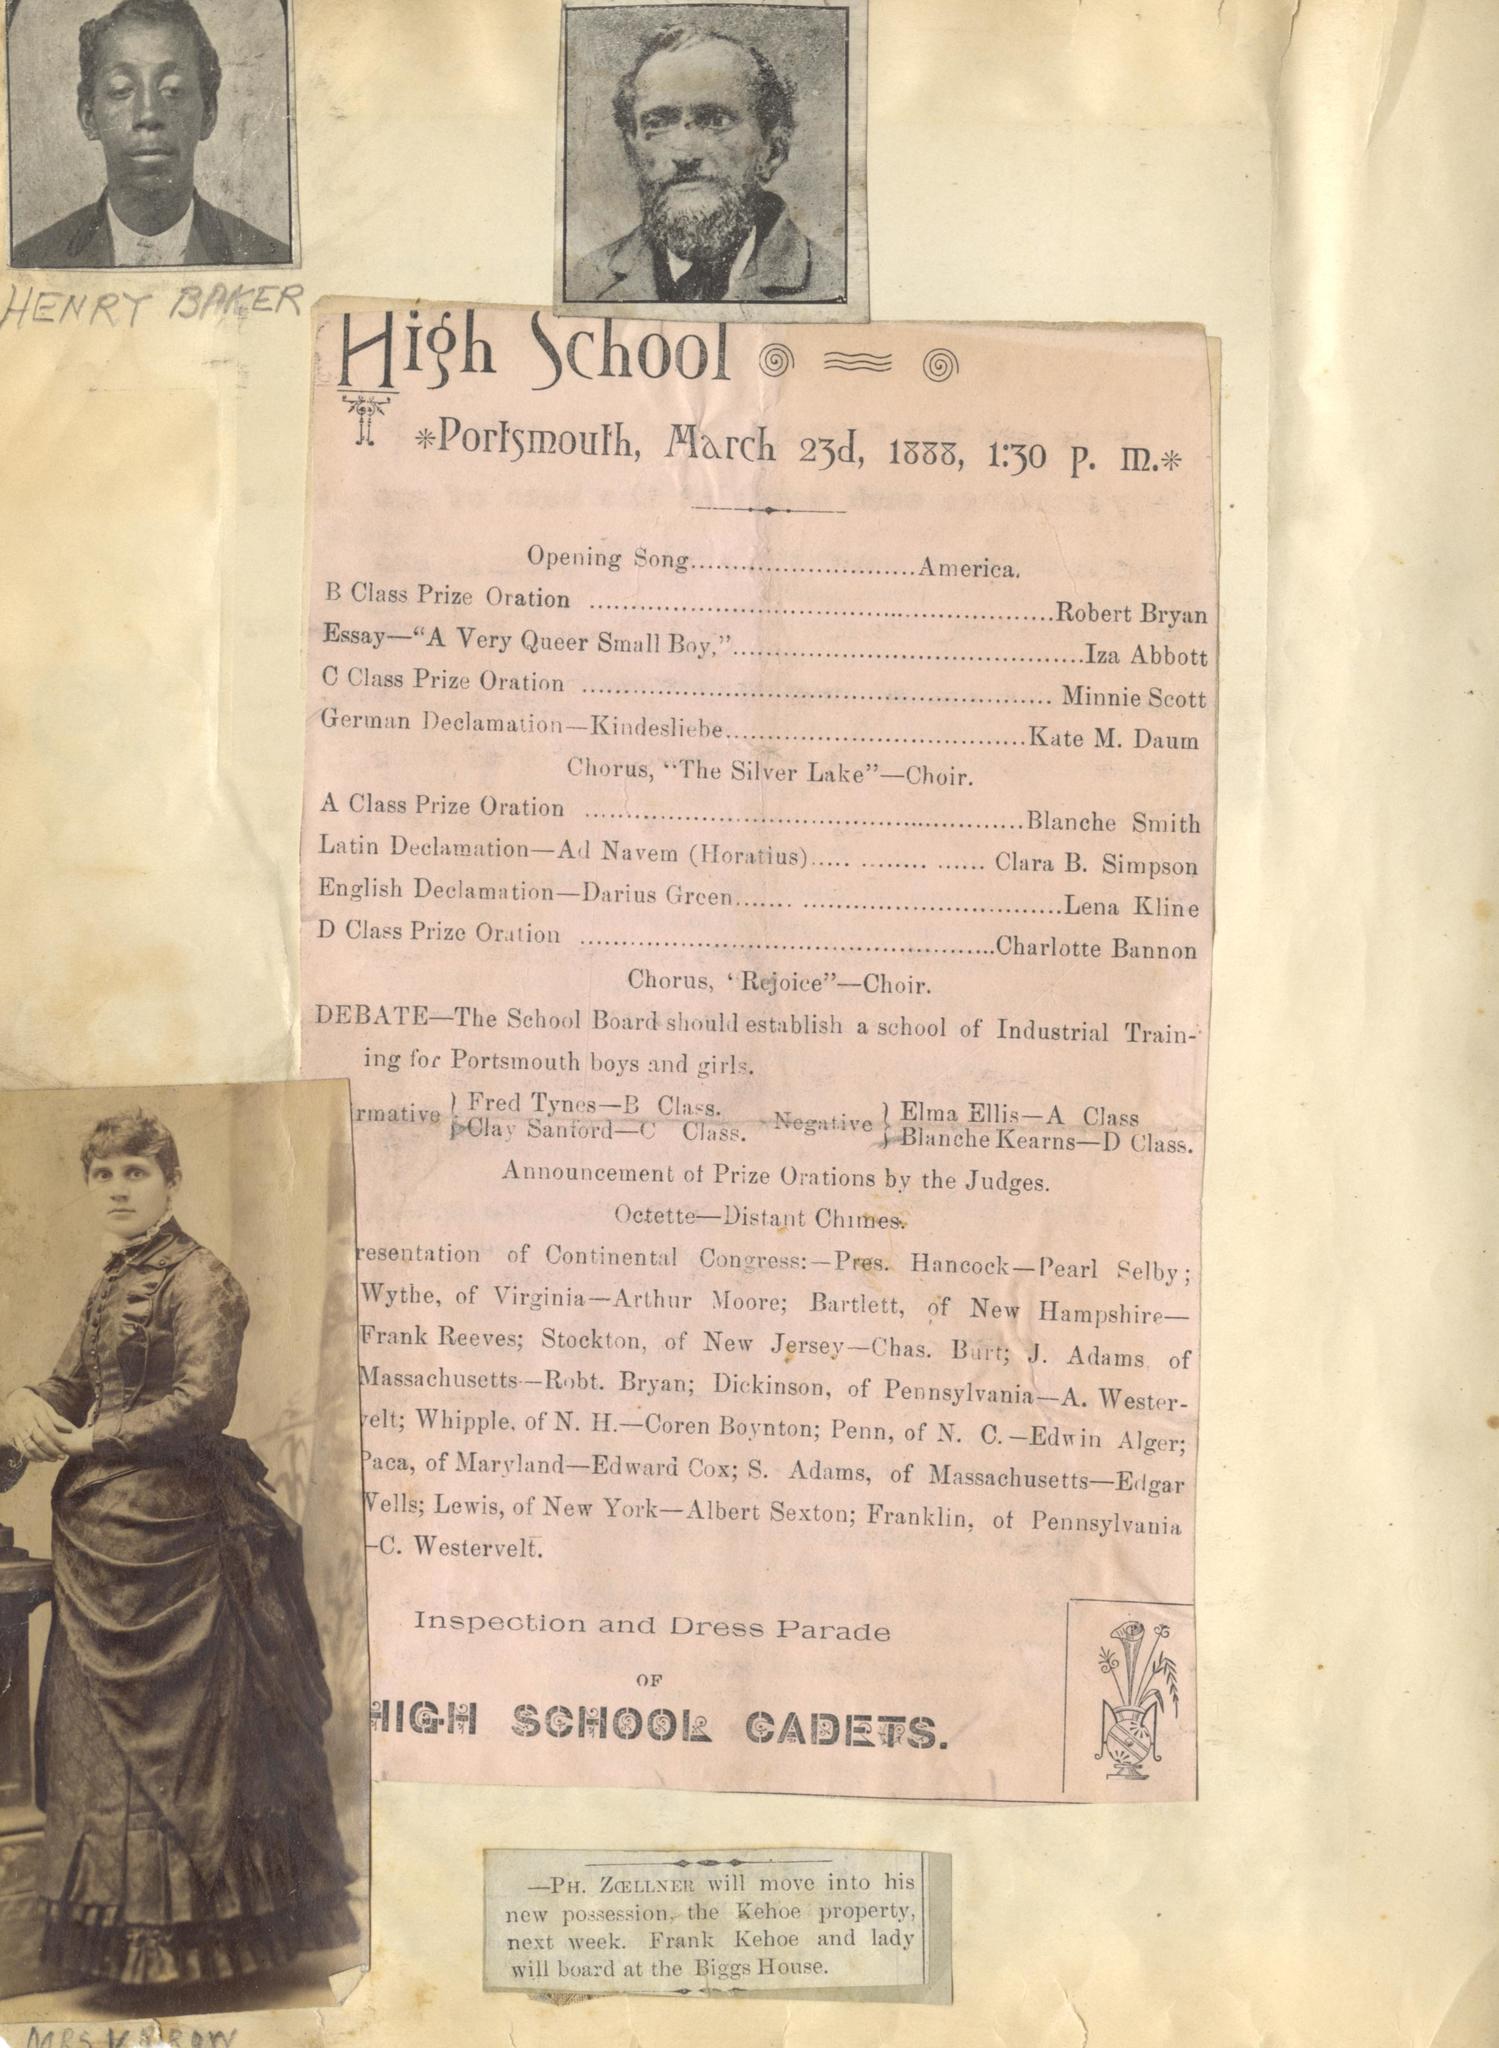 HENRY BAKER
High School
*Portsmouth, March 23d, 1888, 1:30 P. M.*
Opening Song...........................America.
B Class Prize Oration ........................................................Robert Bryan
Essay—“A Very Queer Small Boy,”..........................................Iza Abbott
C Class Prize Oration ........................................................ Minnie Scott
German Declamation—Kindesliebe....................................Kate M. Daum
Chorus, “The Silver Lake”—Choir.
A Class Prize Oration .....................................................Blanche Smith
Latin Declamation—Ad Navem (Horatius)..... ........ ...... Clara B. Simpson
English Declamation—Darius Green....... ...............................Lena Kline
D Class Prize Oration ..................................................Charlotte Bannon
Chorus, ‘Rejoice”—Choir.
DEBATE—The School Board should establish a school of Industrial Train-
ing for Portsmouth boys and girls.
rmative } Fred Tynes—B Class. Negative } Elma Ellis—A Class
Clay Sanford—C Class. Blanche Kearns—D Class.
Announcement of Prize Orations by the Judges.
Octette—Distant Chimes.
resentation of Continental Congress:—Pres. Hancock—Pearl Selby;
Wythe, of Virginia—Arthur Moore; Bartlett, of New Hampshire—
Frank Reeves; Stockton, of New Jersey—Chas. Burt; J. Adams, of
Massachusetts—Robt. Bryan; Dickinson, of Pennsylvania—A. Wester-
velt; Whipple, of N. H.—Coren Boynton; Penn, of N. C.—Edwin Alger;
Paca, of Maryland—Edward Cox; S. Adams, of Massachusetts—Edgar
Wells; Lewis, of New York—Albert Sexton; Franklin, of Pennsylvania
—C. Westervelt.
Inspection and Dress Parade
OF
HIGH SCHOOL CADETS.
—PH. ZŒLLNER will move into his
new possession, the Kehoe property,
next week. Frank Kehoe and lady
will board at the Biggs House.
MRS